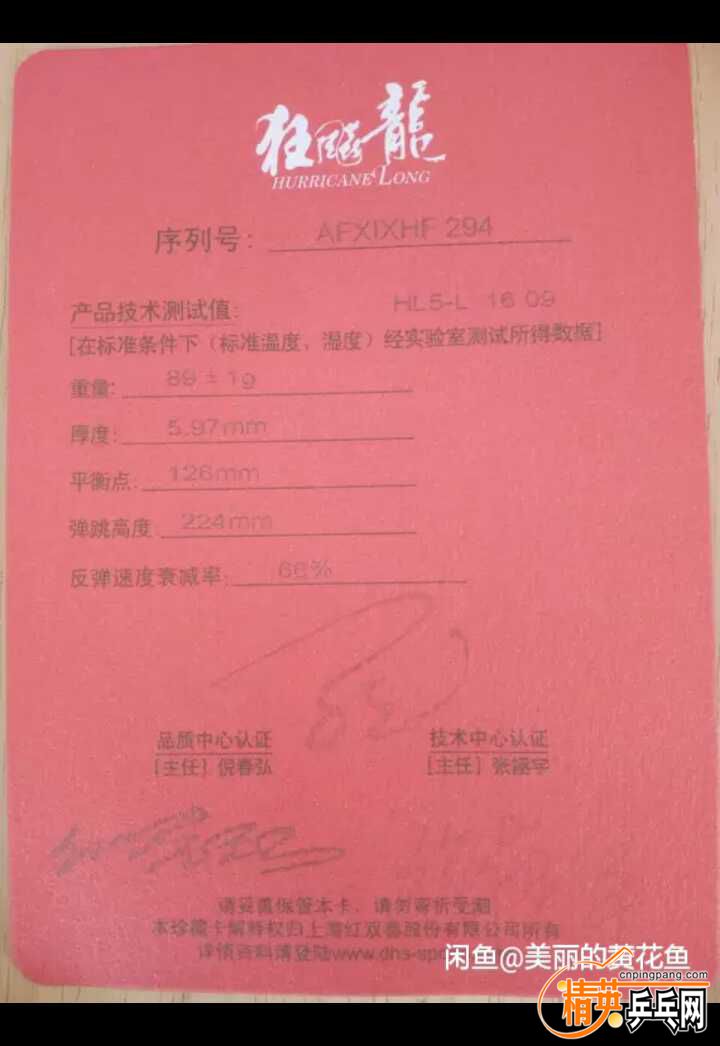 狂飚龍
HURRICANE LONG
序列号: AFXIXHF 294
产品技术测试值: HL5-L 16 09
[在标准条件下(标准温度、湿度)经实验室测试所得数据]
重量: 89±1g
厚度: 5.97mm
平衡点: 126mm
弹跳高度: 224mm
反弹速度衰减率: 66%
品质中心认证 技术中心认证
[主任] 倪春弘 [主任] 张
请妥善保管本卡,请勿弯折受潮
本珍藏卡解释权归上海红双喜股份有限公司所有
详情资料请登陆www.dhs-spo
闲鱼@美丽的黄花鱼
cnpingpang.com
精英乒乓网